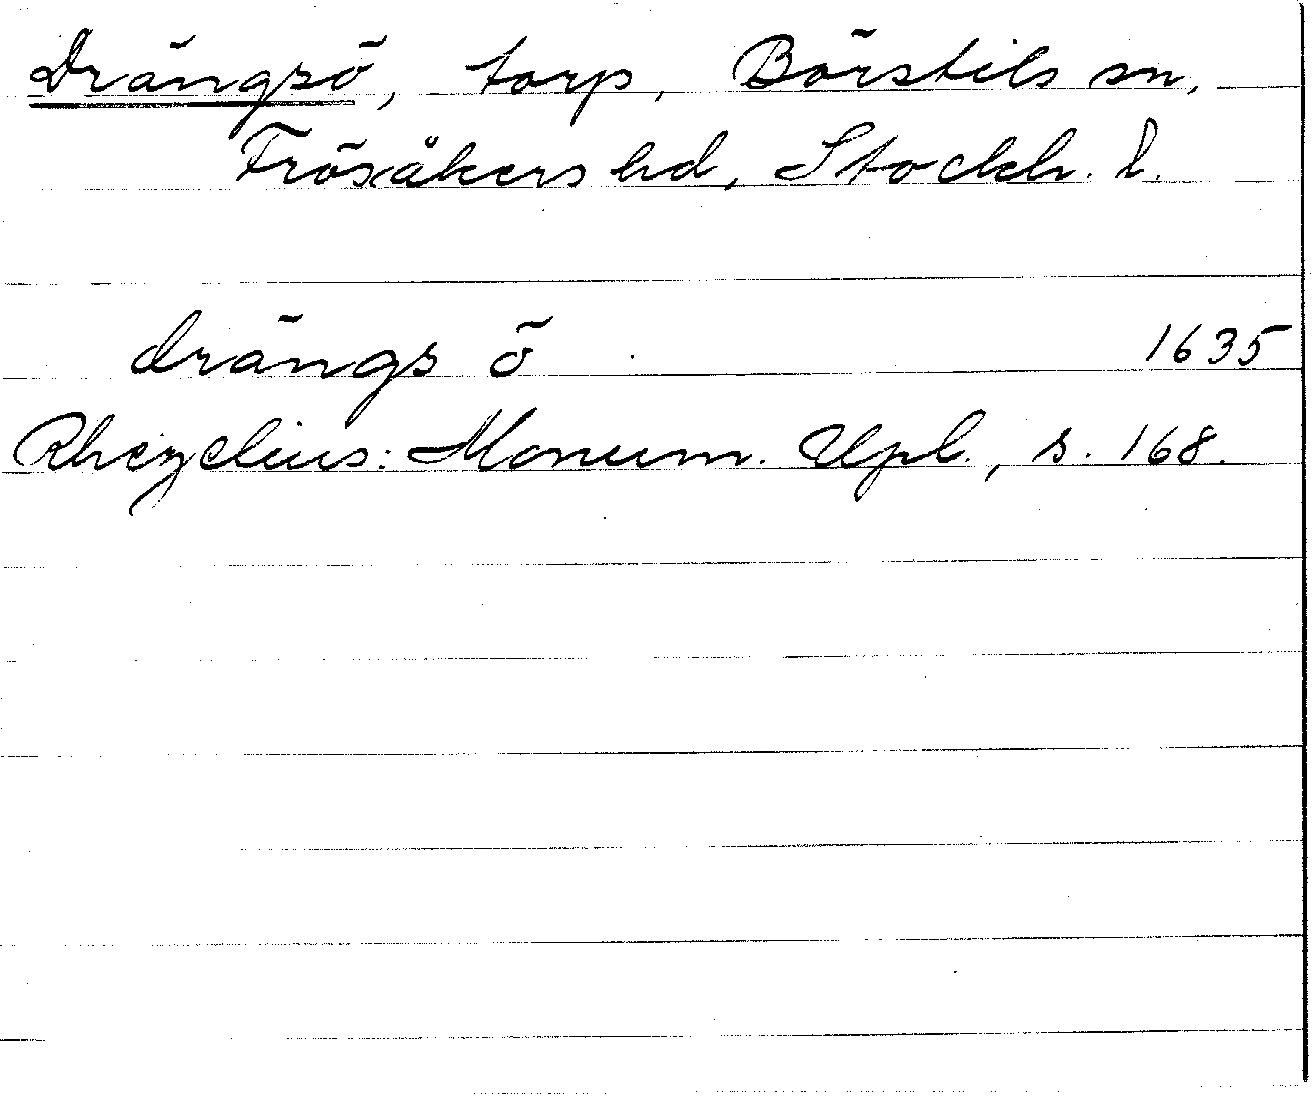 Drängsö, torp, Börstils sn,
Frösåkers hd, Stockh. l.
drängs ö 1635
Rhezelius: Monum. Upl., s. 168.